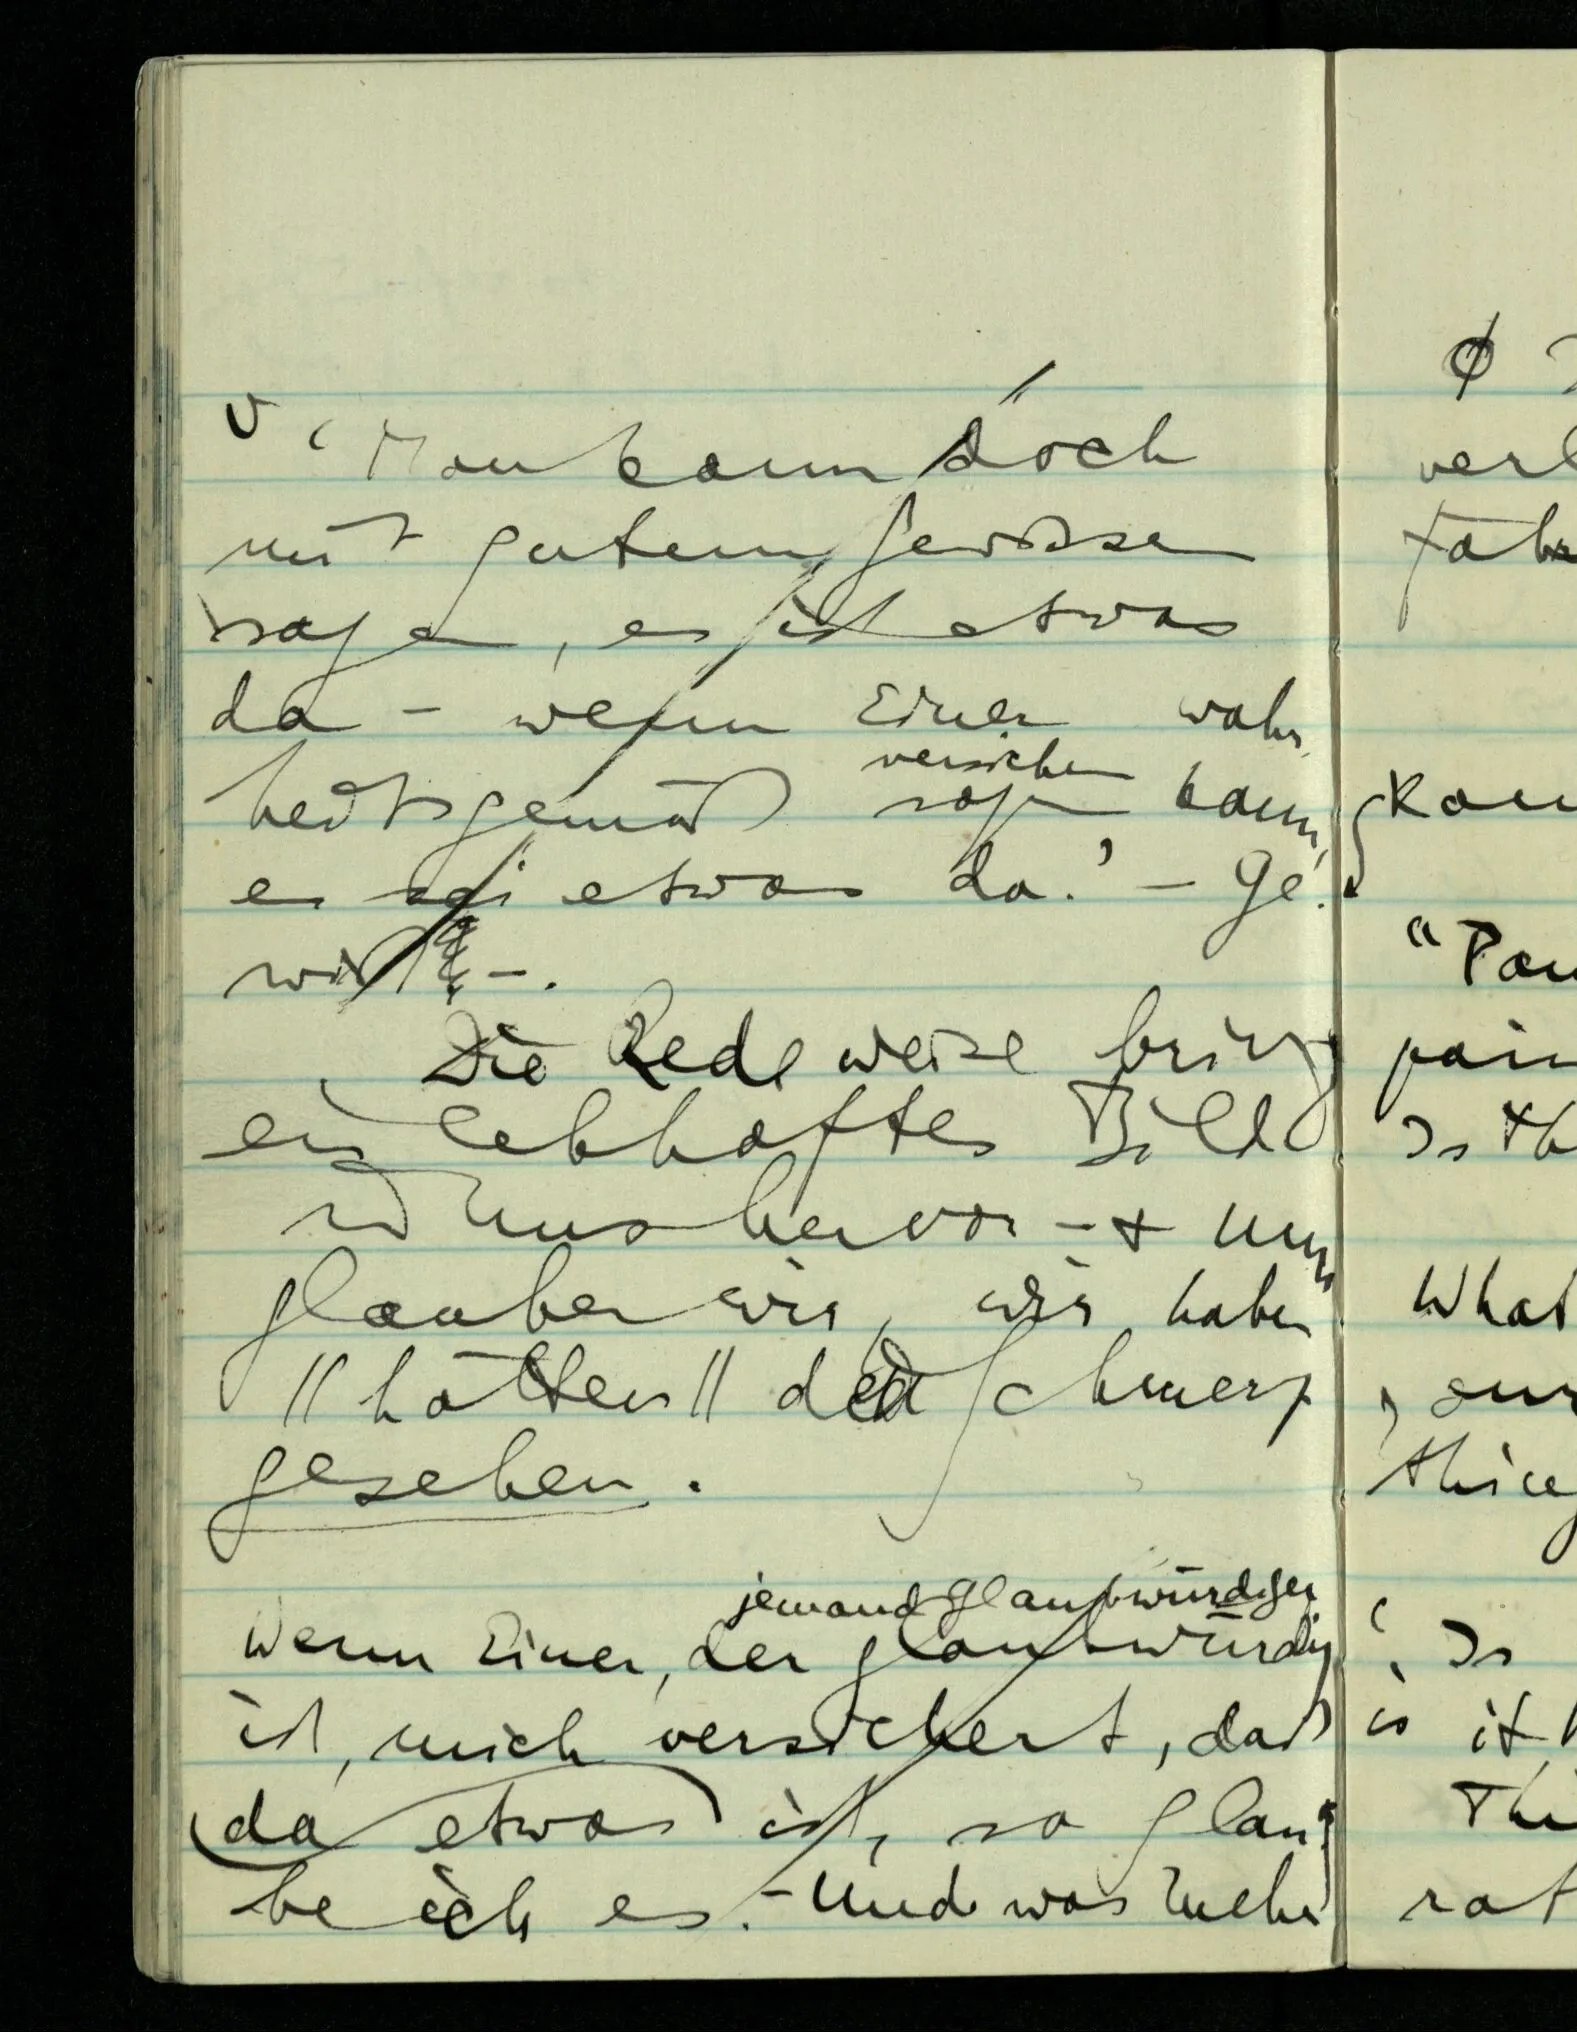 ∪ ‘Man kann doch
mit gutem Gewissen
sagen, es ist etwas
da – wenn Einer wahr
versichern
heitsgemäß sagen kann,
es sei etwas da.’ – Ge-
wiß –.
Die Redeweise bringt
ein lebhaftes Bild
in uns hervor – + nun
glauben wir, wir haben
// hätten // den Schmerz
gesehen.
jemand Glaubwürdiger
Wenn Einer, der glaubwürdig
ist, mich versichert, daß
da etwas ist, so glau-
be ich es. – Und was mehr
∅
verl
fah
Kan
“Pau
pain
Is th
What
, our
thing
‘, Is
is it
Thi
rat